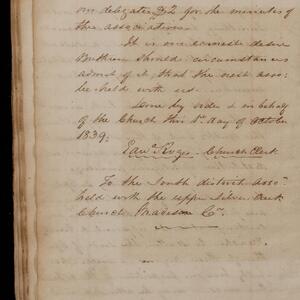 our delegates $2 for the minutes of
the association
It is our earnest desire
Brethren should circumstances
admit of it, that the next asso-
be held with us.
Done by order & in behalf
of the Church this 1st day of October
1839;
Edwd Church Clerk
To the South district asso
held with the upper Silver Creek
Church, Madison Co.